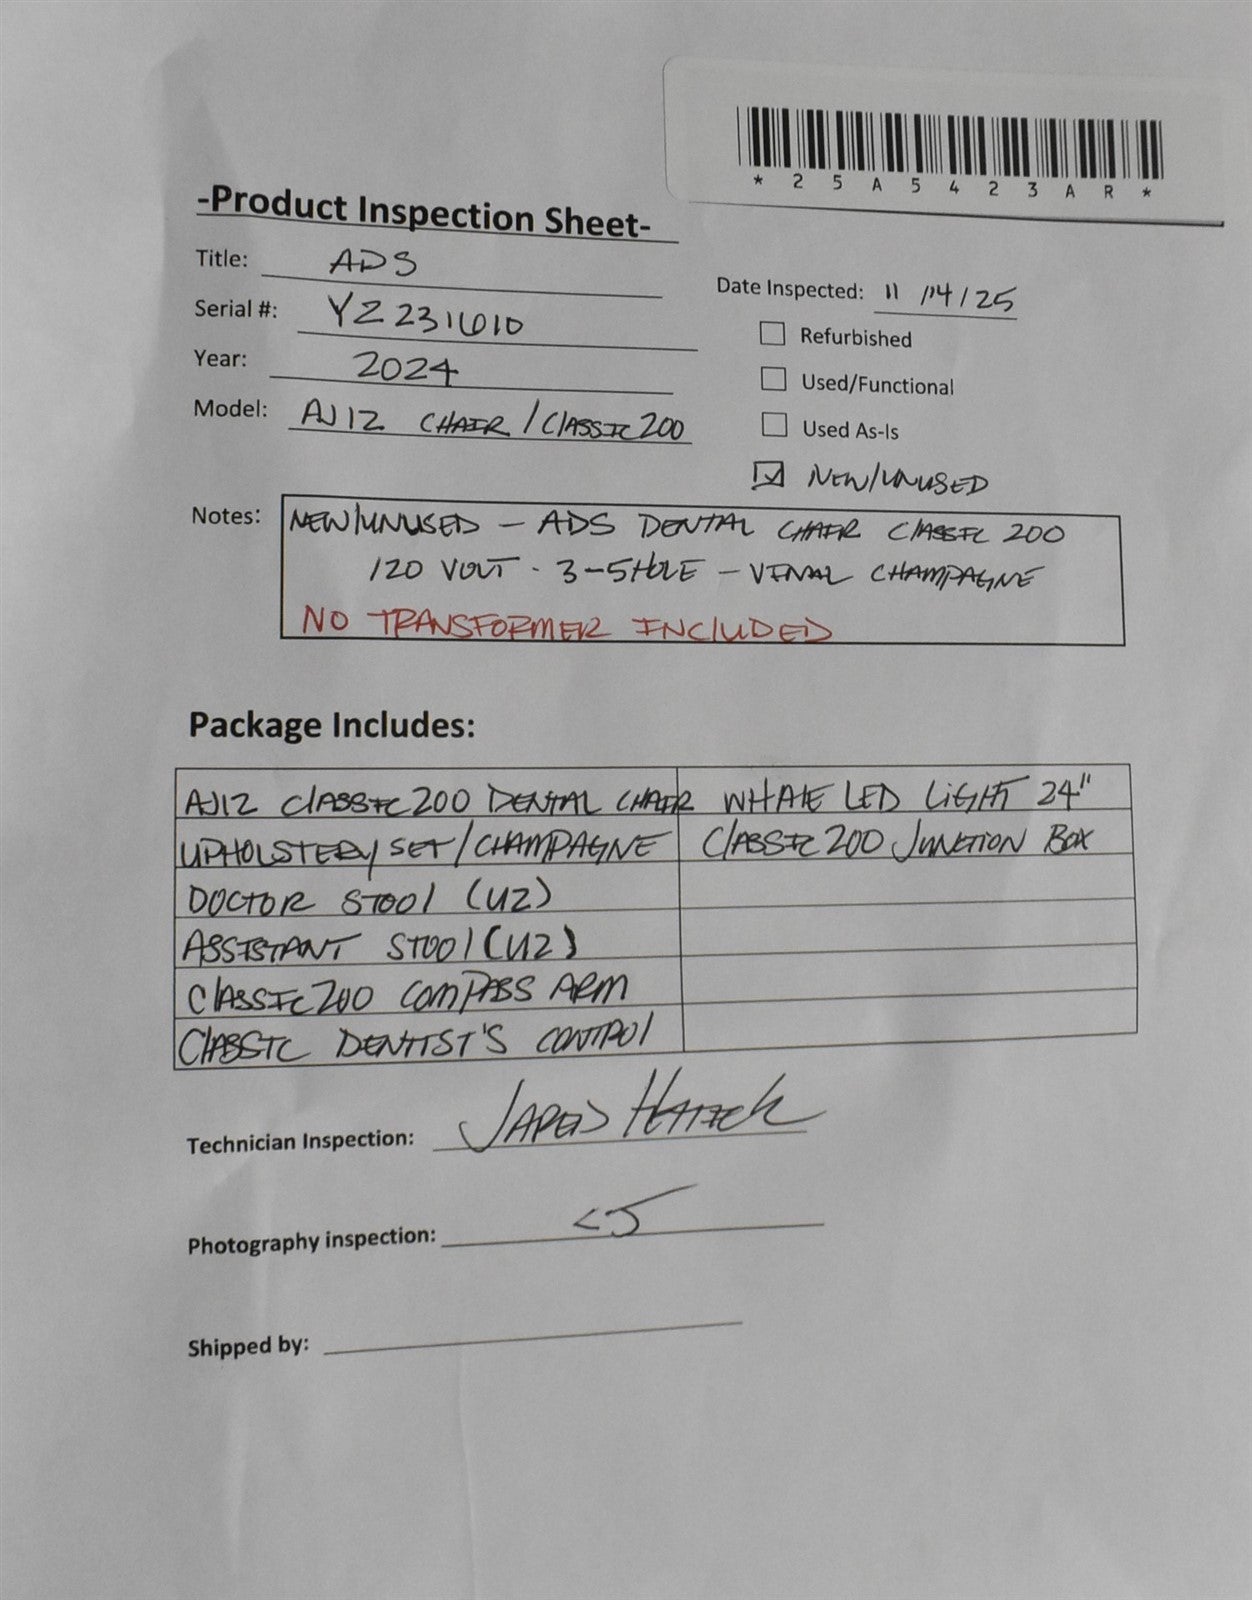 *25A5423AR*
-Product Inspection Sheet-
Title: ADS
Date Inspected: 11/14/25
Serial #: YZ2311010
Refurbished
Year: 2024
Used/Functional
Model: AJ12 CHAIR/Classic 200
Used As-Is
NEW/UNUSED
Notes: NEW/UNUSED - ADS DENTAL CHAIR CLASSIC 200
120 VOLT - 3-5 HOLE - VINAL CHAMPAGNE
NO TRANSFORMER INCLUDED
Package Includes:
AJ12 Classic 200 DENTAL CHAIR WHALE LED LIGHT 24"
UPHOLSTERY SET/CHAMPAGNE Classic 200 JUNCTION BOX
DOCTOR STOOL (U2)
ASSISTANT STOOL (U2)
Classic 200 COMPASS ARM
CLASSIC DENTIST'S CONTROL
Technician Inspection: JARED
Photography inspection:
Shipped by: